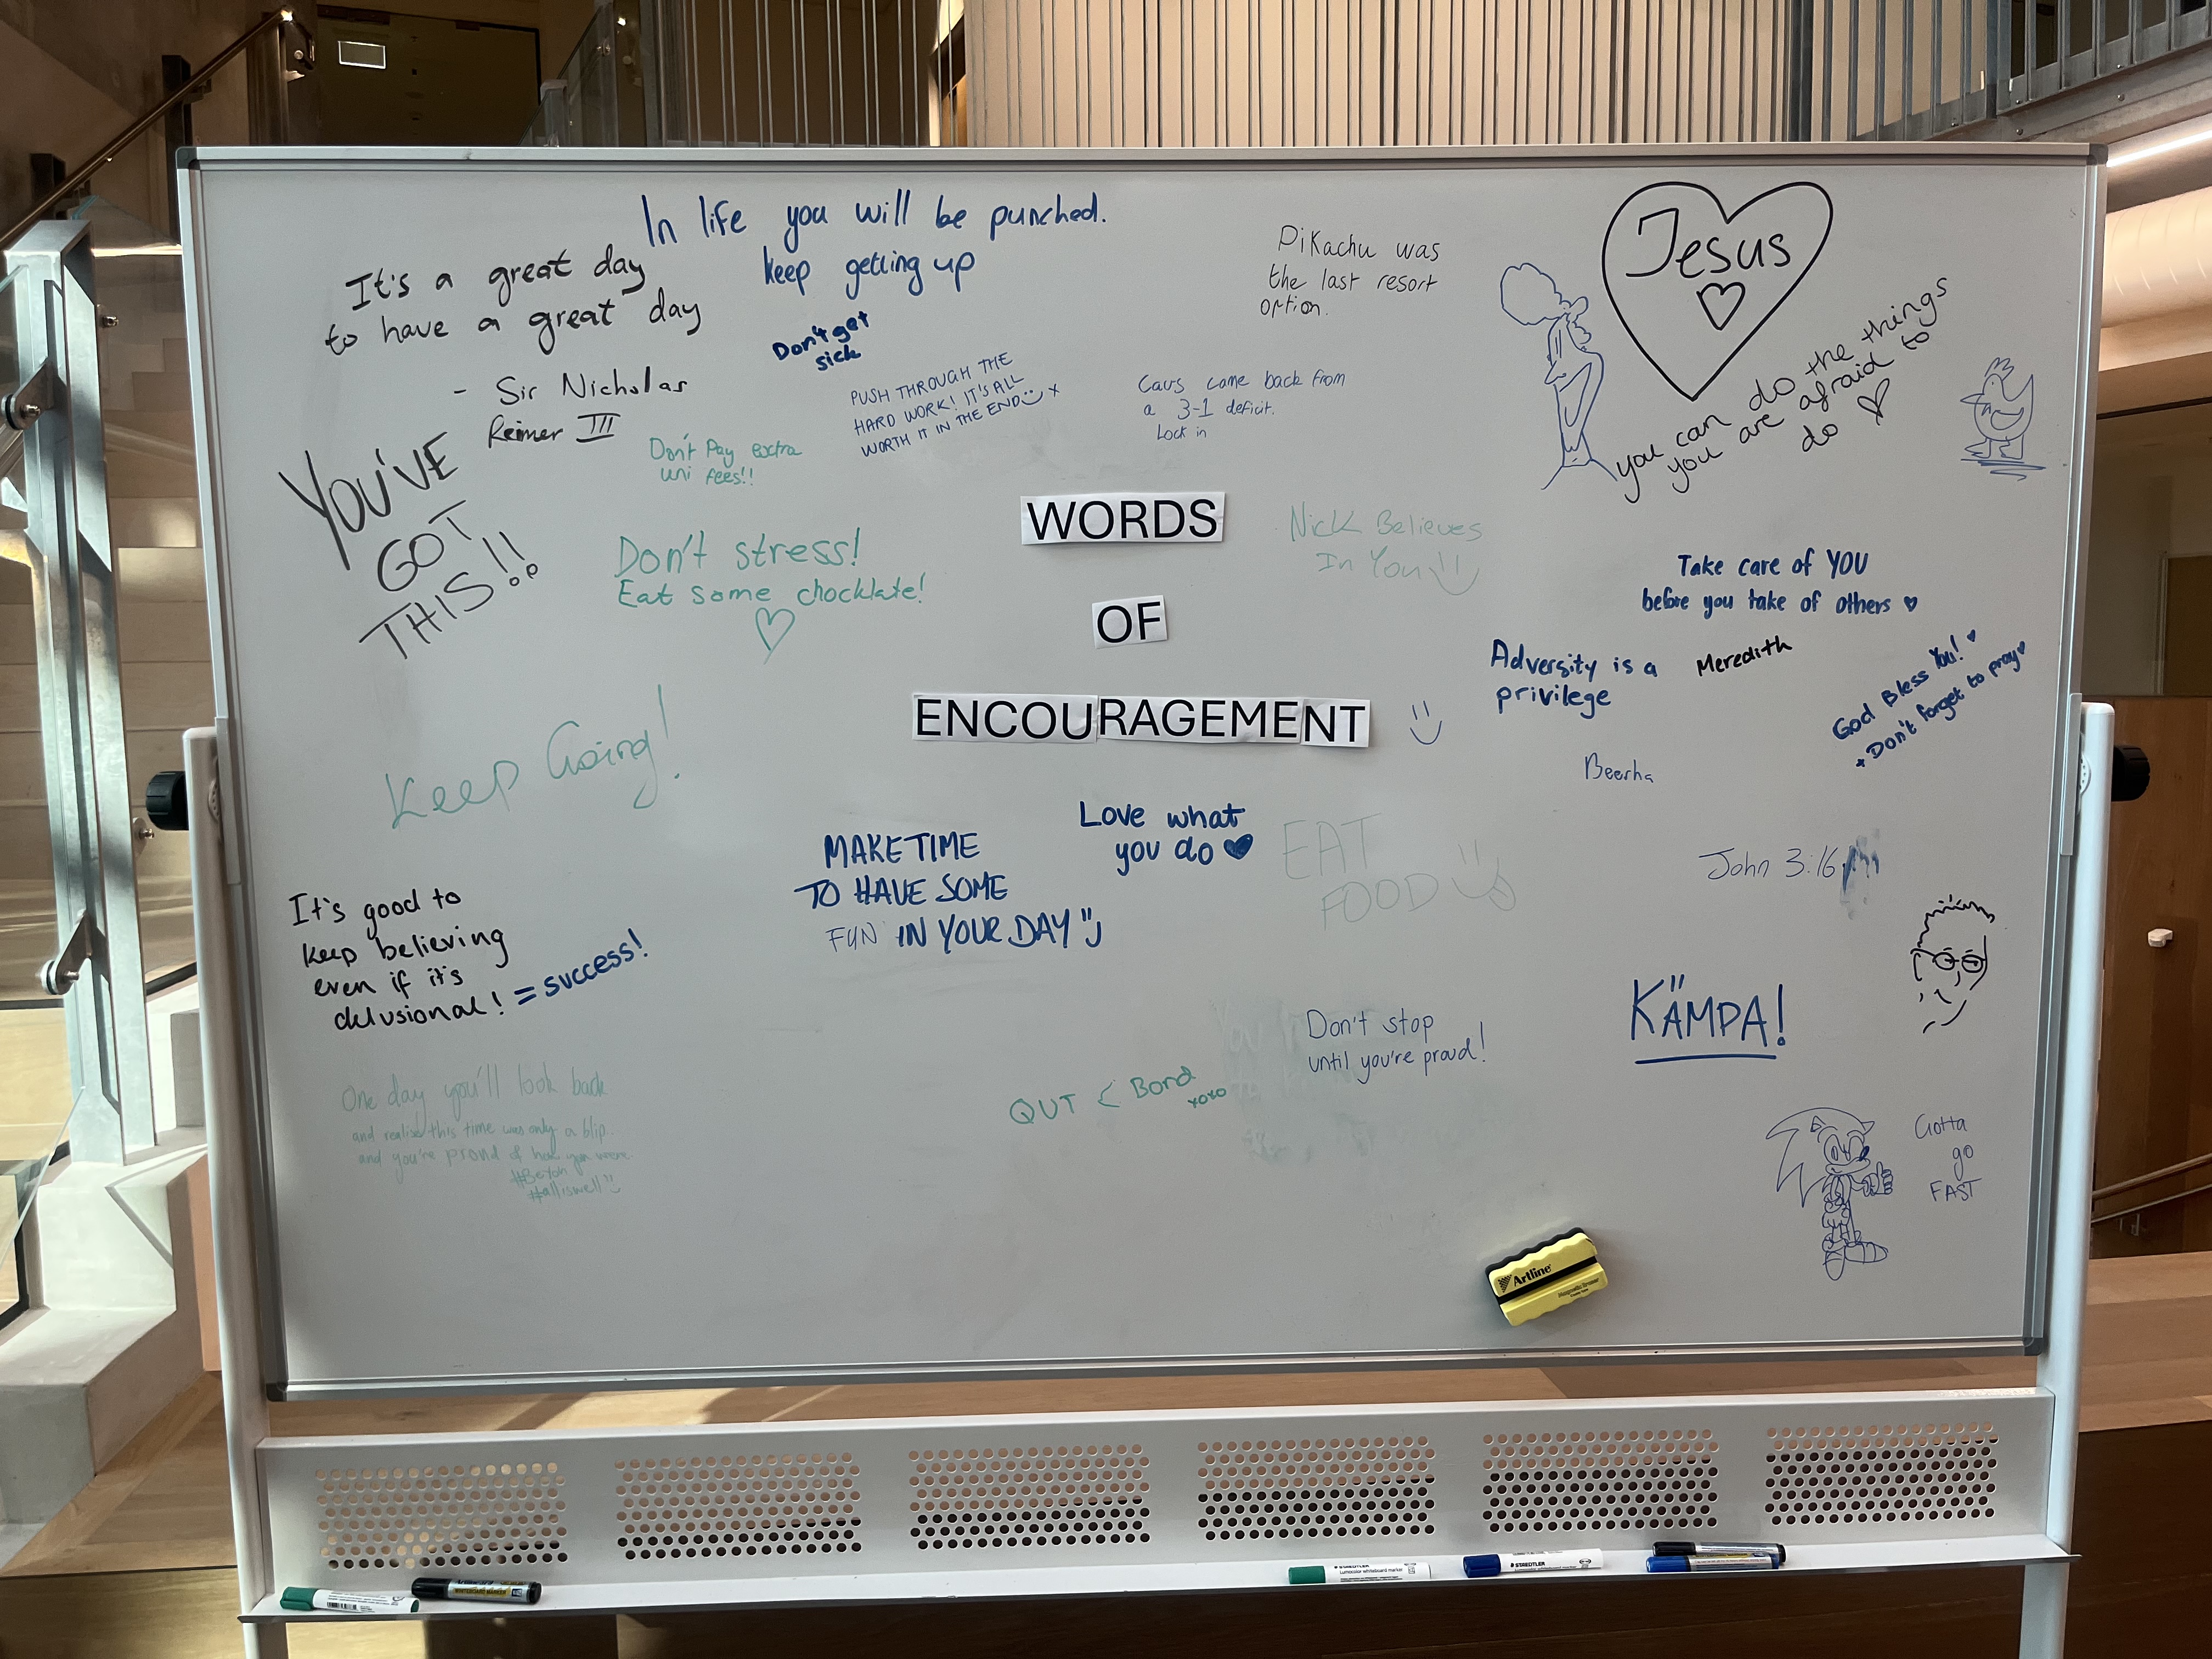 In life you will be punched.
keep getting up
It's a great day
to have a great day
- Sir Nicholas
Reimer III
Don't get
sick
PUSH THROUGH THE
HARD WORK! IT'S ALL
WORTH IT IN THE END x
Pikachu was
the last resort
option.
Cavs came back from
a 3-1 deficit.
Lock in
Jesus
you can do the things
you are afraid to
do
YOU'VE
GOT
THIS!!
Don't Pay extra
uni fees!!
Don't stress!
Eat some chocklate!
WORDS
OF
ENCOURAGEMENT
Nick Believes
In You
Take care of YOU
before you take of others
Adversity is a
privilege
Meredith
God Bless You!
Don't forget to pray
Beerha
Keep Going!
MAKE TIME
TO HAVE SOME
FUN IN YOUR DAY
Love what
you do
EAT
FOOD
John 3:16
It's good to
keep believing
even if it's
delusional! = success!
KÄMPA!
Don't stop
until you're proud!
QUT < Bond
xoxo
One day you'll look back
and realise this time was only a blip..
and you're proud of how you were
#alliswell
Gotta
go
FAST
Artline
Magnetic Eraser
WHITEBOARD MARKER
STAEDTLER
Lumocolor whiteboard marker
STAEDTLER
Lumocolor whiteboard marker